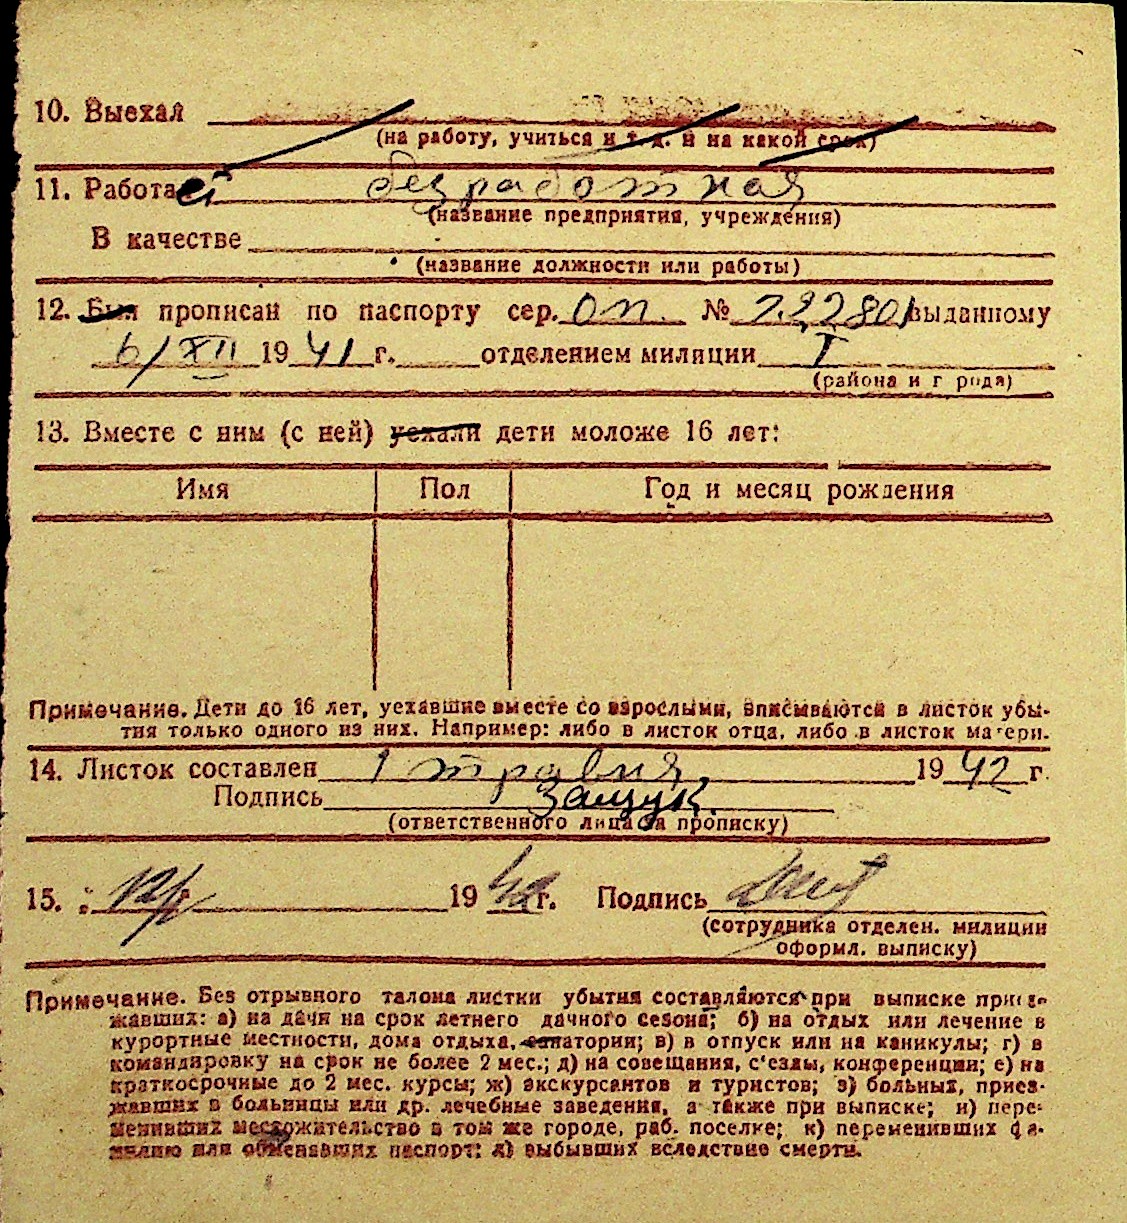 10. Выехал
(на работу, учиться и т. д. и на какой срок)
11. Работает безработная
(название предприятия, учреждения)
В качестве
(название должности или работы)
12. Был прописан по паспорту сер. ОП. № 792801 выданному
6/XII 1941 г. отделением милиции I
(района и г рода)
13. Вместе с ним (с ней) уехали дети моложе 16 лет:
Имя Пол Год и месяц рождения
Примечание. Дети до 16 лет, уехавшие вместе со взрослыми, вписываются в листок убы-
тия только одного из них. Например: либо в листок отца, либо в листок матери.
14. Листок составлен 1 травня 1942 г.
Подпись Защук
(ответственного лица за прописку)
15. 1942 г. Подпись
(сотрудника отделен. милиции
оформл. выписку)
Примечание. Без отрывного талона листки убытия составляются при выписке приез-
жавших: а) на дачи на срок летнего дачного сезона; б) на отдых или лечение в
курортные местности, дома отдыха, санатории; в) в отпуск или на каникулы; г) в
командировку на срок не более 2 мес.; д) на совещания, с'езды, конференции; е) на
краткосрочные до 2 мес. курсы; ж) экскурсантов и туристов; з) больных, приез-
жавших в больницы или др. лечебные заведения, а также при выписке; и) пере-
менивших местожительство в том же городе, раб. поселке; к) переменивших фа-
милию или обменявших паспорт; л) выбывших вследствие смерти.